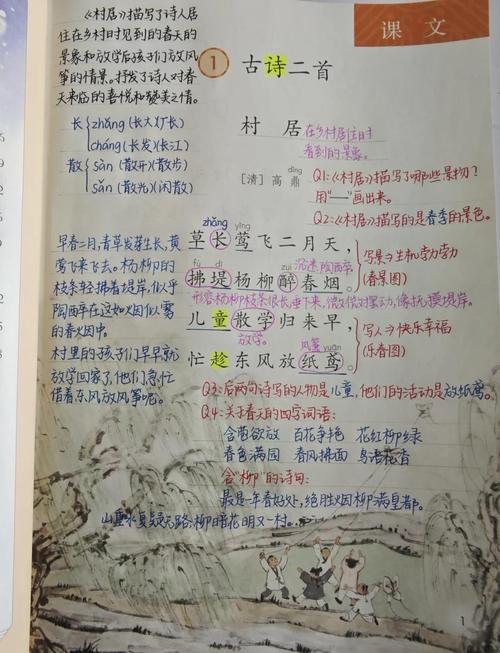 《村居》描写了诗人居
住在乡村时见到的春天的
景象和放学后孩子们放风
筝的情景。抒发了诗人对春
天来临的喜悦和赞美之情。
课文
1 古诗二首
长 zhǎng(长大)(厂长)
cháng(长发)(长江)
散 sàn(散开)(散步)
sǎn(散光)(闲散)
村居
在乡村居住时
看到的景象。
dǐng
[清]高鼎
Q1:《村居》描写了哪些景物?
用"—"画出来。
Q2:《村居》描写的是春季的景色。
早春二月,青草发芽生长,黄
莺飞来飞去。杨柳的
枝条轻拂着堤岸,似乎
陶醉在这如烟似雾
的春火因中。
村里的孩子们早早就
放学回家了,他们急忙
借着东风放风筝呢。
zhǎng yīng
草长莺飞二月天,
fú dī zuì 沉迷,陶醉
拂堤杨柳醉春烟。
写景→生机勃勃
(春景图)
形容杨柳枝条很长,垂下来,微微摆动,像抚摸堤岸。
儿童散学归来早,
放学。 风筝 yuān
忙趁东风放纸鸢。
写人→快乐幸福
(乐春图)
Q3:后两句诗写的人物是儿童,他们的活动是放纸鸢。
Q4:关于春天的四字词语:
含苞欲放 百花争艳 花红柳绿
春色满园 春风拂面 鸟语花香
含"柳"的诗句:
最是一年春好处,绝胜烟柳满皇都。
山重水复疑无路,柳暗花明又一村。
1